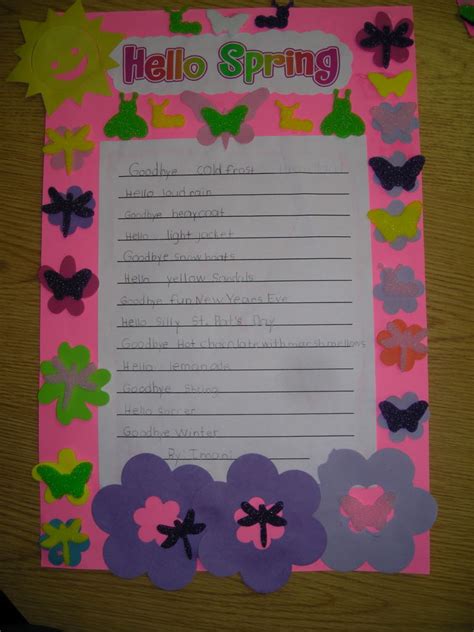 Hello Spring
Goodbye cold frost
Hello loud rain
Goodbye heavycoat
Hello light jacket
Goodbye snow boats
Hello yellow Sandals
Goodbye fun New Years Eve
Hello silly St. Pat's Day
Goodbye Hot chocolate with marshmellows
Hello lemonade
Goodbye
Hello soccer
Goodbye Winter
By: Imani